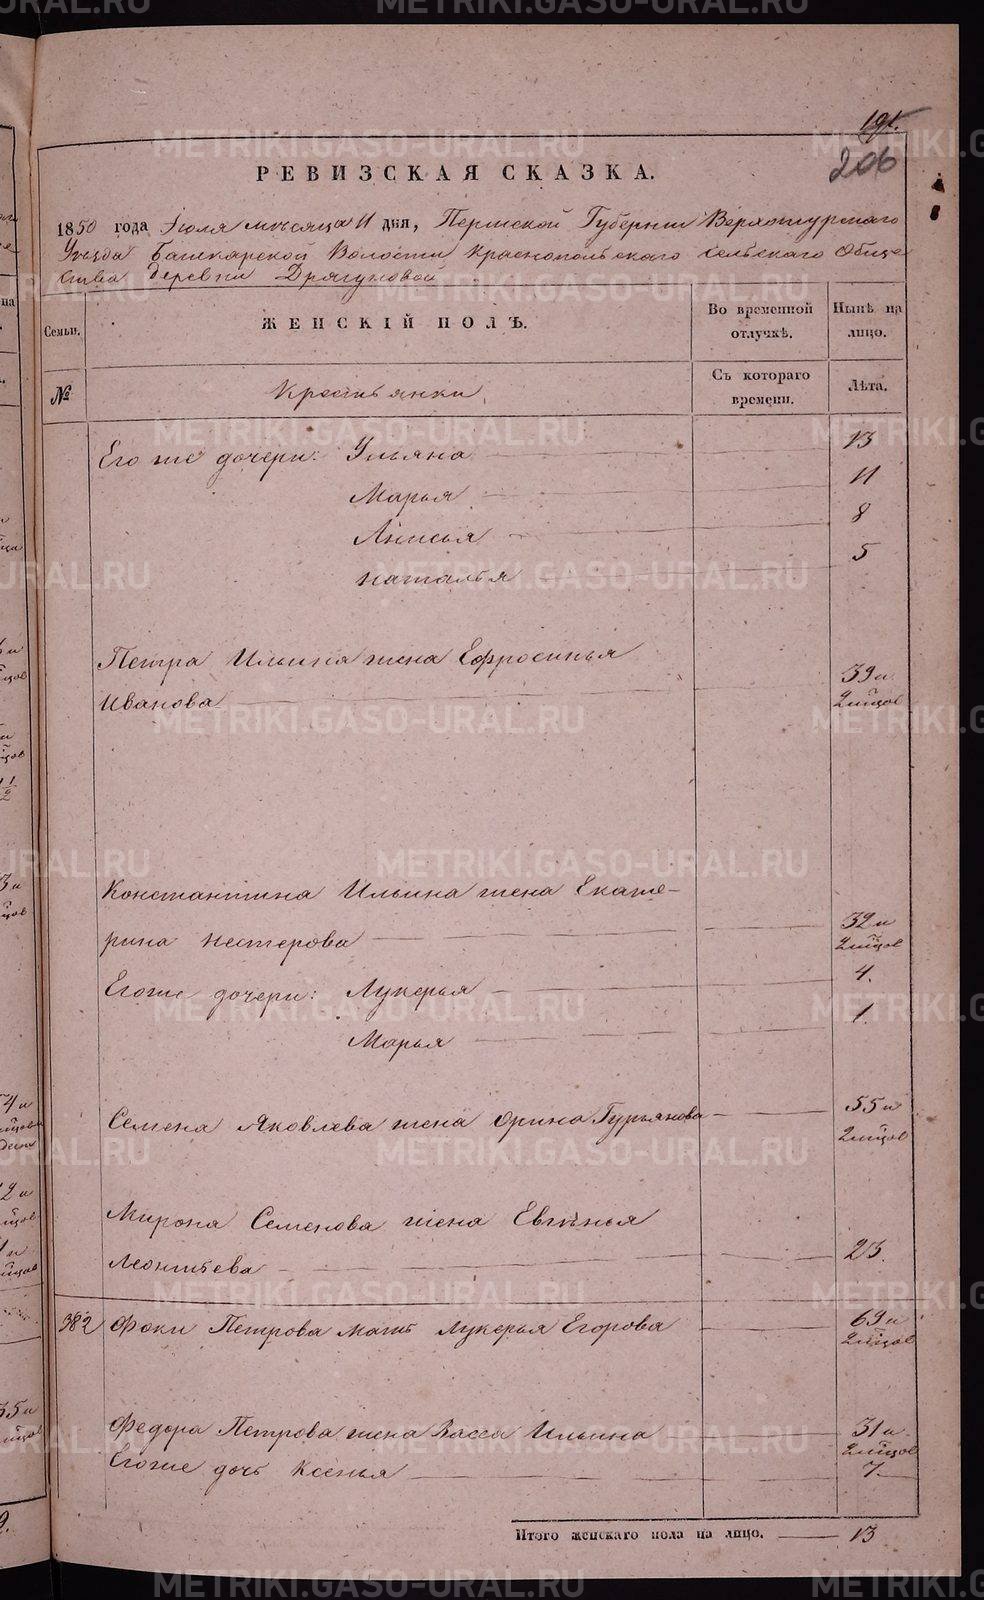 191.
206
РЕВИЗСКАЯ СКАЗКА.
1850 года Июля мѣсяца 11 дня, Пермской Губернии Верхотурскаго
Уѣзда Башкарской Волости Краснопольскаго сельскаго Обще-
ства деревни Дрягуновой
Семьи. ЖЕНСКІЙ ПОЛЪ. Во временной отлучкѣ. Нынѣ на лицо.
№ Крестьянки. Съ котораго времени. Лѣта.
Его же дочери: Ульяна 13
Марья 11
Анисья 8
Наталья 5
Петра Ильина жена Ефросинья
Иванова 39 и 2 мцов
Константина Ильина жена Екате-
рина Нестерова 32 и 2 мцов
Егоже дочери: Лукерья 4.
Марья 1.
Семена Яковлева жена Орина Гурьянова 55 и 2 мцов
Мирона Семенова жена Евгѣнья
Леонтьева 23.
382 Фоки Петрова мать Лукерья Егорова 69 и 2 мцов
Федора Петрова жена Васса Ильина 31 и 2 мцов
Егоже дочь Ксенья 7
Итого женскаго пола на лицо. 13
METRIKI.GASO-URAL.RU